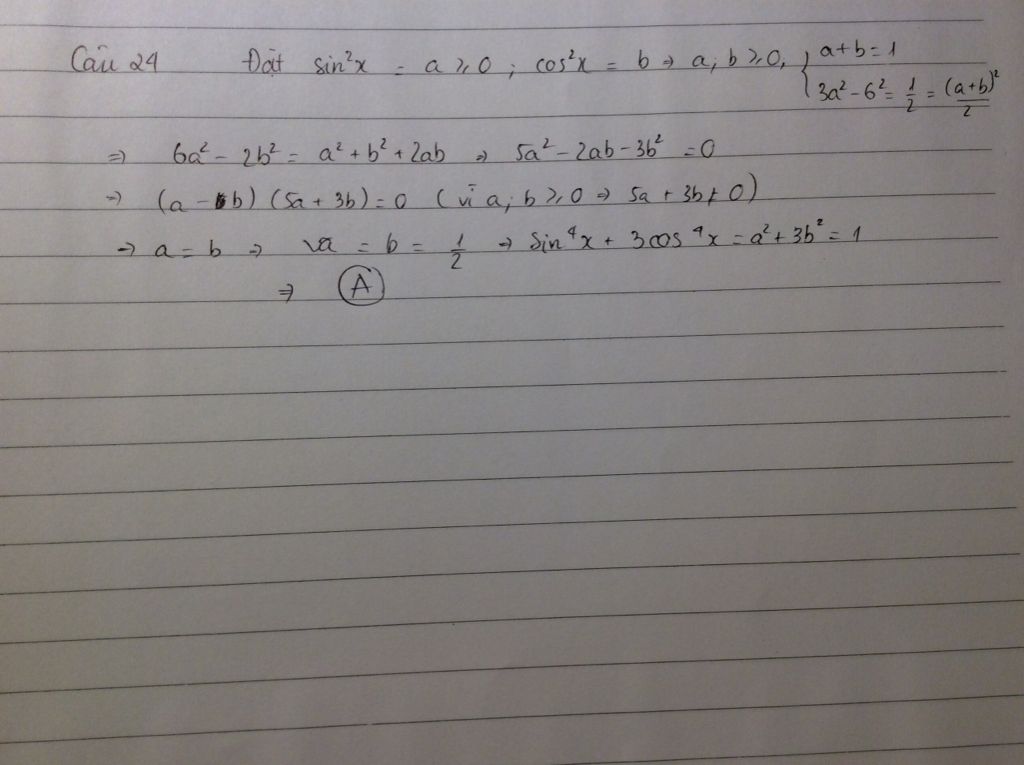 Câu 24 Đặt sin²x = a ≥ 0 ; cos²x = b ⇒ a, b ≥ 0, { a+b = 1
3a² - 6² = 1/2 = (a+b)²/2
⇒ 6a² - 2b² = a² + b² + 2ab ⇒ 5a² - 2ab - 3b² = 0
⇒ (a - b) (5a + 3b) = 0 (vì a, b ≥ 0 ⇒ 5a + 3b ≠ 0)
⇒ a = b ⇒ a = b = 1/2 ⇒ sin⁴x + 3cos⁴x = a² + 3b² = 1
⇒ A